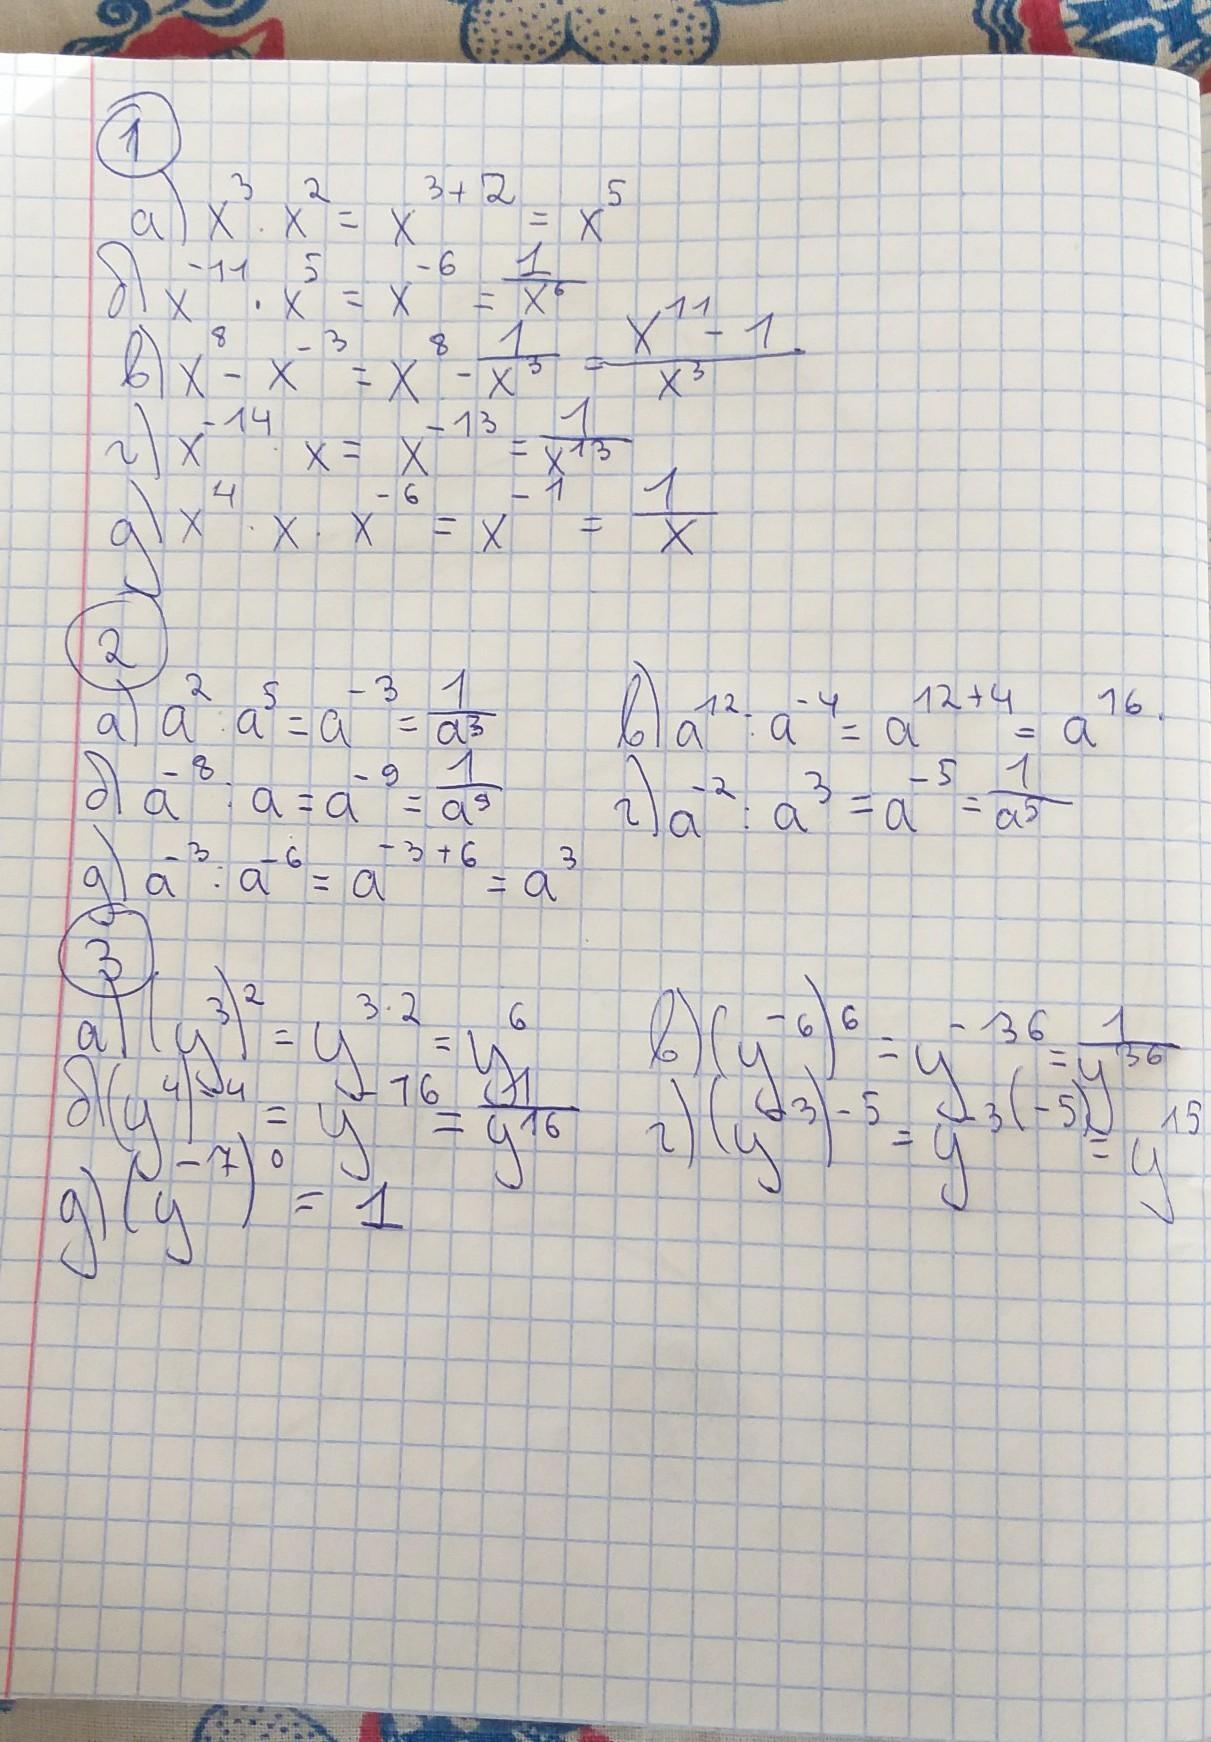 1
а) x³ · x² = x³⁺² = x⁵
б) x⁻¹¹ · x⁵ = x⁻⁶ = 1/x⁶
в) x⁸ - x⁻³ = x⁸ - 1/x³ = (x¹¹ - 1)/x³
г) x⁻¹⁴ · x = x⁻¹³ = 1/x¹³
д) x⁴ · x · x⁻⁶ = x⁻¹ = 1/x
2
а) a² : a⁵ = a⁻³ = 1/a³
б) a⁻⁸ : a = a⁻⁹ = 1/a⁹
в) a¹² : a⁻⁴ = a¹²⁺⁴ = a¹⁶
г) a⁻² : a³ = a⁻⁵ = 1/a⁵
д) a⁻³ : a⁻⁶ = a⁻³⁺⁶ = a³
3
а) (y³)² = y³·² = y⁶
б) (y⁴)⁻⁴ = y⁻¹⁶ = 1/y¹⁶
в) (y⁻⁶)⁶ = y⁻¹³⁶ = 1/y³⁶
г) (y⁻³)⁻⁵ = y⁻³⁽⁻⁵⁾ = y¹⁵
д) (y⁻⁷)⁰ = 1